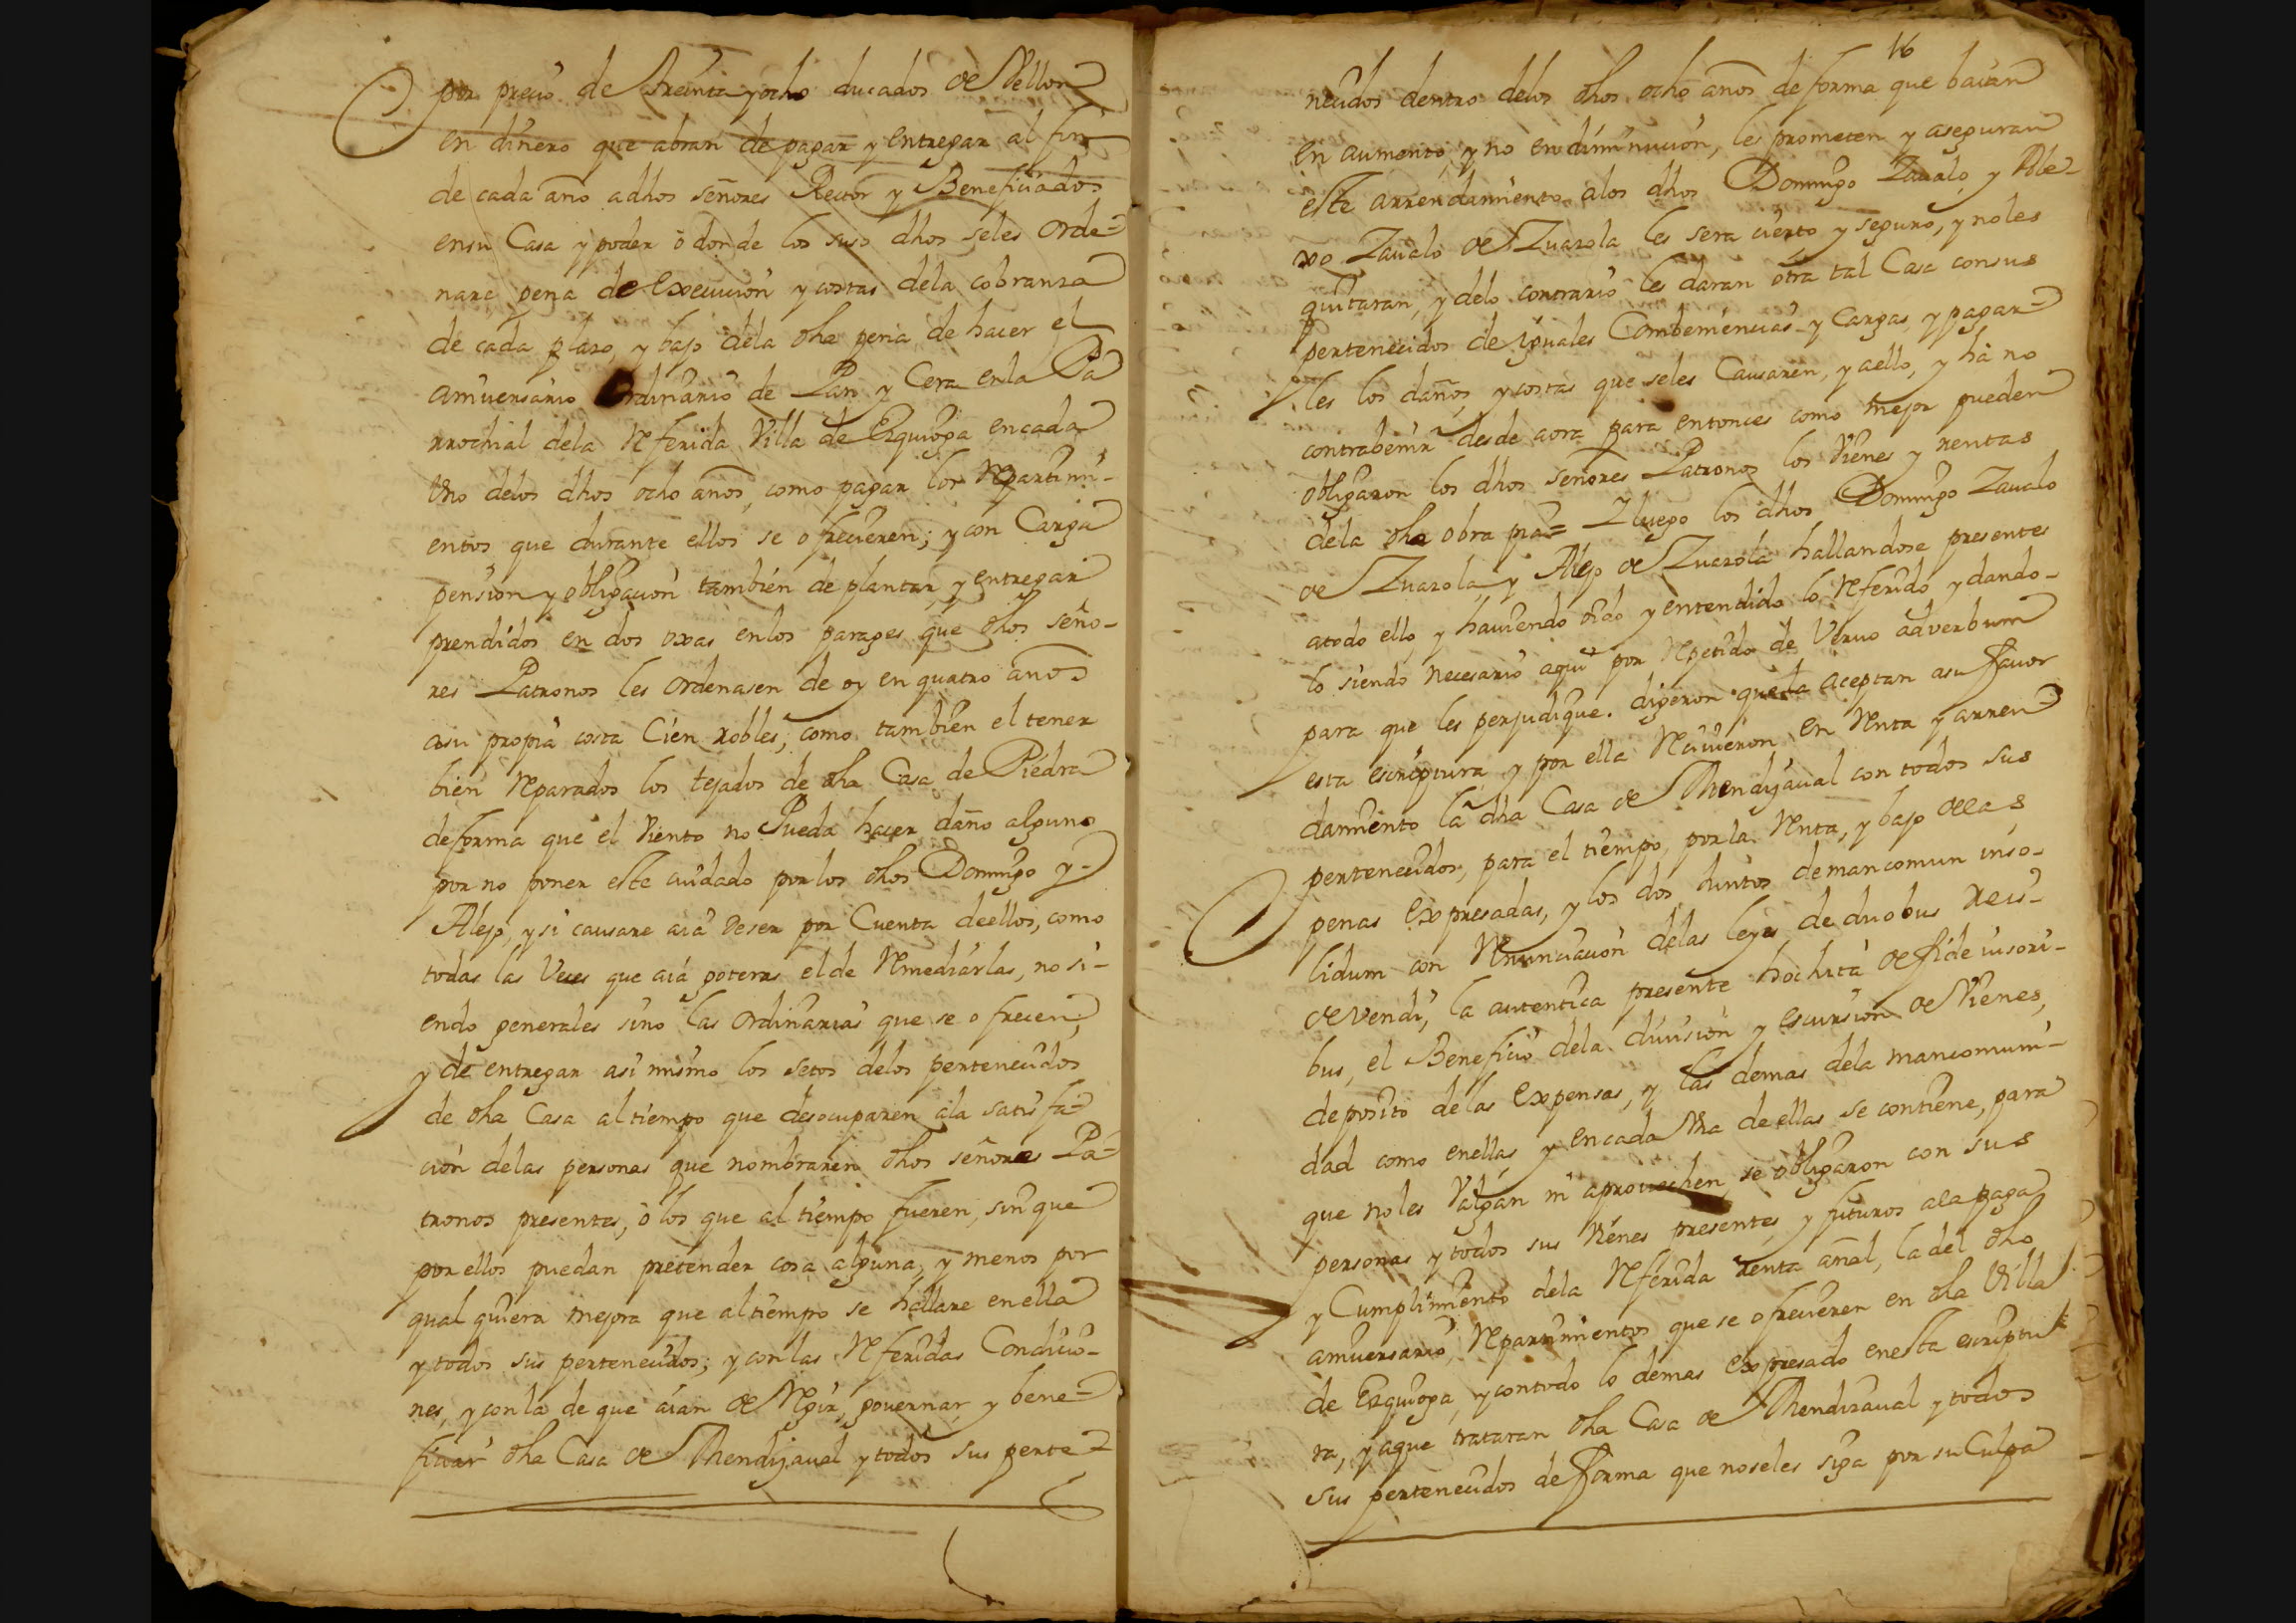 por precio de Treinta y ocho ducados de Vellon
en dinero que abran de pagar y entregar al fin
de cada año a dhos señores Rector y Beneficiados
en su Casa y poder ò donde los suso dhos seles orde=
nare, pena de Execucion y costas dela cobranza
de cada plazo, y bajo dela dha pena de hacer el
aniversario Ordinario de Pan y Cera en la Pa
rrochial dela Referida Villa de Ezquioga en cada
Vno delos dhos ocho años, como pagar los Repartimi-
entos que durante ellos se ofrecieren; y con Carga
pension y obligacion tambien de plantar, y entregar
prendidos en dos oxas en los parages que dhos seño-
res Patronos les ordenasen de oy en quatro años
asu propia costa Cien robles, como tambien el tener
bien Reparados los tejados de dha Casa de Piedra
deforma que el Viento no Pueda hacer daño alguno
por no poner este cuidado por los dhos Domingo y-
Alejo, y si causare aià deser por Cuenta de ellos, como
todas las Veces que aià goteras el de Remediarlas, no si-
endo generales sino las Ordinarias que se ofrecen,
y de entregar asi mismo los setos delos pertenecidos
de dha Casa al tiempo que desocuparen ala satisfa=
cion delas personas que nombraren dhos señores Pa=
tronos presentes, ò los que al tiempo fueren, sin que
por ellos puedan pretender cosa alguna, y menos por
qual quiera mejora que al tiempo se hallare en ella
y todos sus pertenecidos; y con las Referidas Condicio-
nes, y con la de que aian de Regir, governar, y bene=
ficiar dha Casa de Mendizaval y todos sus perte=
16
necidos dentro delos dhos ocho años de forma que baian
en aumento, y no en diminucion, les prometen y aseguran
este arrendamiento alos dhos Domingo Zavalo y Ale=
xo Zavalo de Zuazola les sera cierto y seguro, y noles
quitaran, y delo contrario les daran otra tal Casa consus
pertenecidos de iguales Combeniencias y Cargas, y pagar=
les los daños, y costas que seles Causaren, y aello, y hà no
contrabenir desde aora para entonces como mejor pueden
obligaron los dhos señores Patronos los Vienes y rentas
dela dha obra pia= Y luego los dhos Domingo Zavalo
de Zuazola, y Alejo de Zuazola hallandose presentes
atodo ello, y haviendo oido y entendido lo Referido y dando-
lo siendo necesario aqui por Repetido de Vervo adverbum
para que les perjudique. digeron que la aceptan asu favor
esta escriptura, y por ella Recivieron en Renta y arren=
damiento la dha Casa de Mendizaval con todos sus
pertenecidos, para el tiempo, por la Renta, y bajo de las
penas Expresadas, y los dos Juntos demancomun inso-
lidum con Renunciacion delas leyes de duobus Reis-
devendi, la autentica presente hochita de fide iusori-
bus, el Beneficio dela division y escursion de Vienes,
deposito delas Expensas, y las demas dela mancomuni-
dad como en ellas y en cada Vna de ellas se contiene, para
que noles Valgan ni aprovechen se obligaron con sus
personas y todos sus Vienes presentes y futuros ala paga
y Cumplimiento dela Referida renta añal, la del dho
aniversario, Repartimientos que se ofrecieren en dha Villa
de Ezquioga, y contodo lo demas Expresado enesta escriptu
ra, y aque trataran dha Casa de Mendizaval y todos
sus pertenecidos de forma que noseles siga por su Culpa